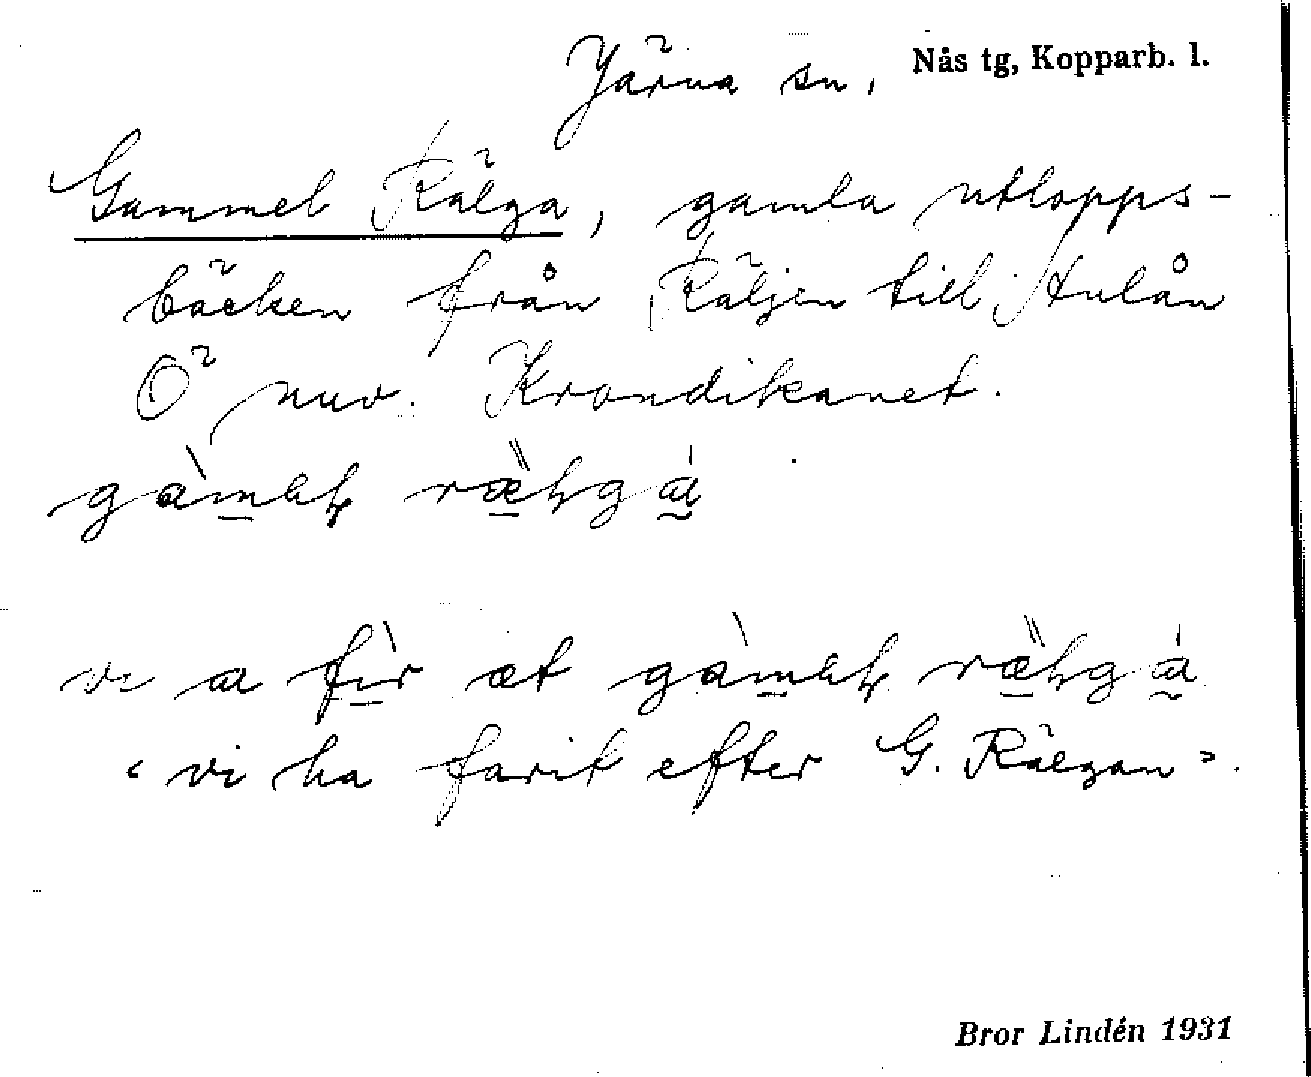 Järna sn, Nås tg, Kopparb. l.
Gammel Rälga, gamla utlopps-
bäcken från Räljen till Hulån
Ö nuv. Krondikanet.
vi a
‹ vi ha farit efter G. Rälgan ›.
Bror Lindén 1931